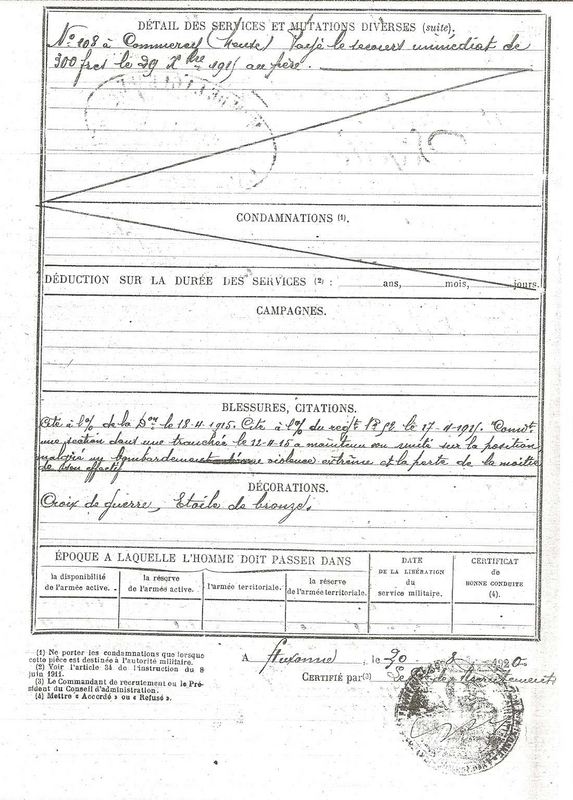 DÉTAIL DES SERVICES ET MUTATIONS DIVERSES (suite).
N° 108 à Commercy (Meuse) Payé le secours immédiat de
300 frcs le 29 Xbre 1915 au père.
CONDAMNATIONS (1).
DÉDUCTION SUR LA DURÉE DES SERVICES (2) : ans, mois, jours.
CAMPAGNES.
BLESSURES, CITATIONS.
Cité à l'o/ de la Don le 18-4-1915. Cité à l'o/ du régt le 17-4-1915. Comdt
une section dans une tranchée le 12-4-15 a maintenu son unité sur la position
malgré un bombardement d'une violence extrême et la perte de la moitié
de son effectif
DÉCORATIONS.
Croix de guerre, Etoile de bronze.
ÉPOQUE A LAQUELLE L'HOMME DOIT PASSER DANS
la disponibilité de l'armée active.
la réserve de l'armée active.
l'armée territoriale.
la réserve de l'armée territoriale.
DATE DE LA LIBÉRATION du service militaire.
CERTIFICAT de BONNE CONDUITE (4).
(1) Ne porter les condamnations que lorsque
cette pièce est destinée à l'autorité militaire.
(2) Voir l'article 34 de l'instruction du 8
juin 1911.
(3) Le Commandant de recrutement ou le Pré-
sident du Conseil d'administration.
(4) Mettre « Accordé » ou « Refusé ».
A Auxonne, le 20 8 1920
CERTIFIÉ par (3) Le de Recrutement